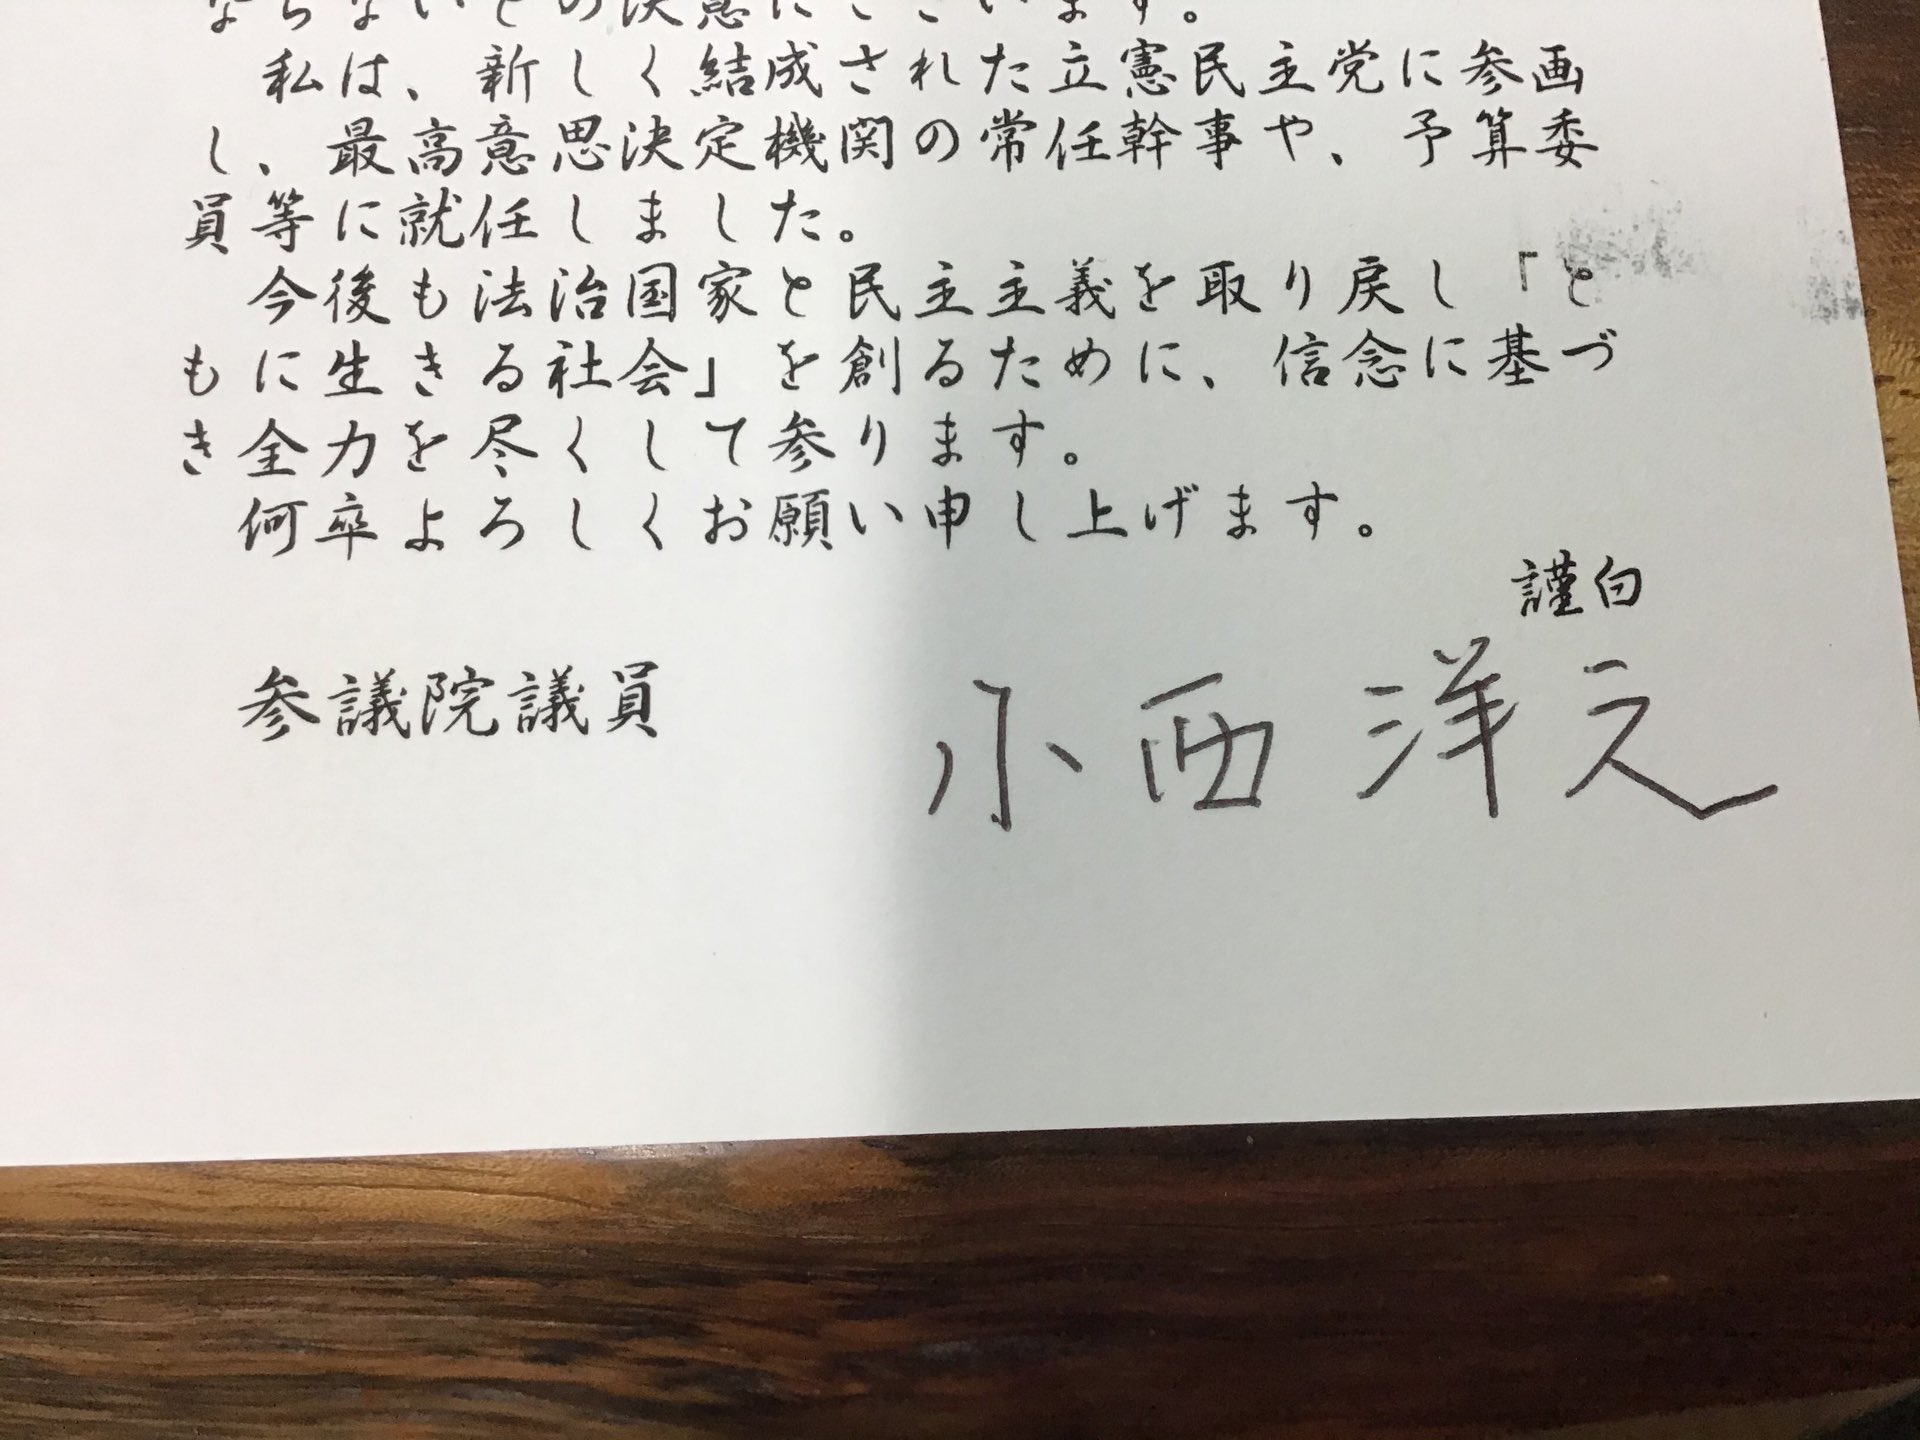 ならないとの決意にございます。
私は、新しく結成された立憲民主党に参画
し、最高意思決定機関の常任幹事や、予算委
員等に就任しました。
今後も法治国家と民主主義を取り戻し「と
もに生きる社会」を創るために、信念に基づ
き全力を尽くして参ります。
何卒よろしくお願い申し上げます。
謹白
参議院議員 小西洋之